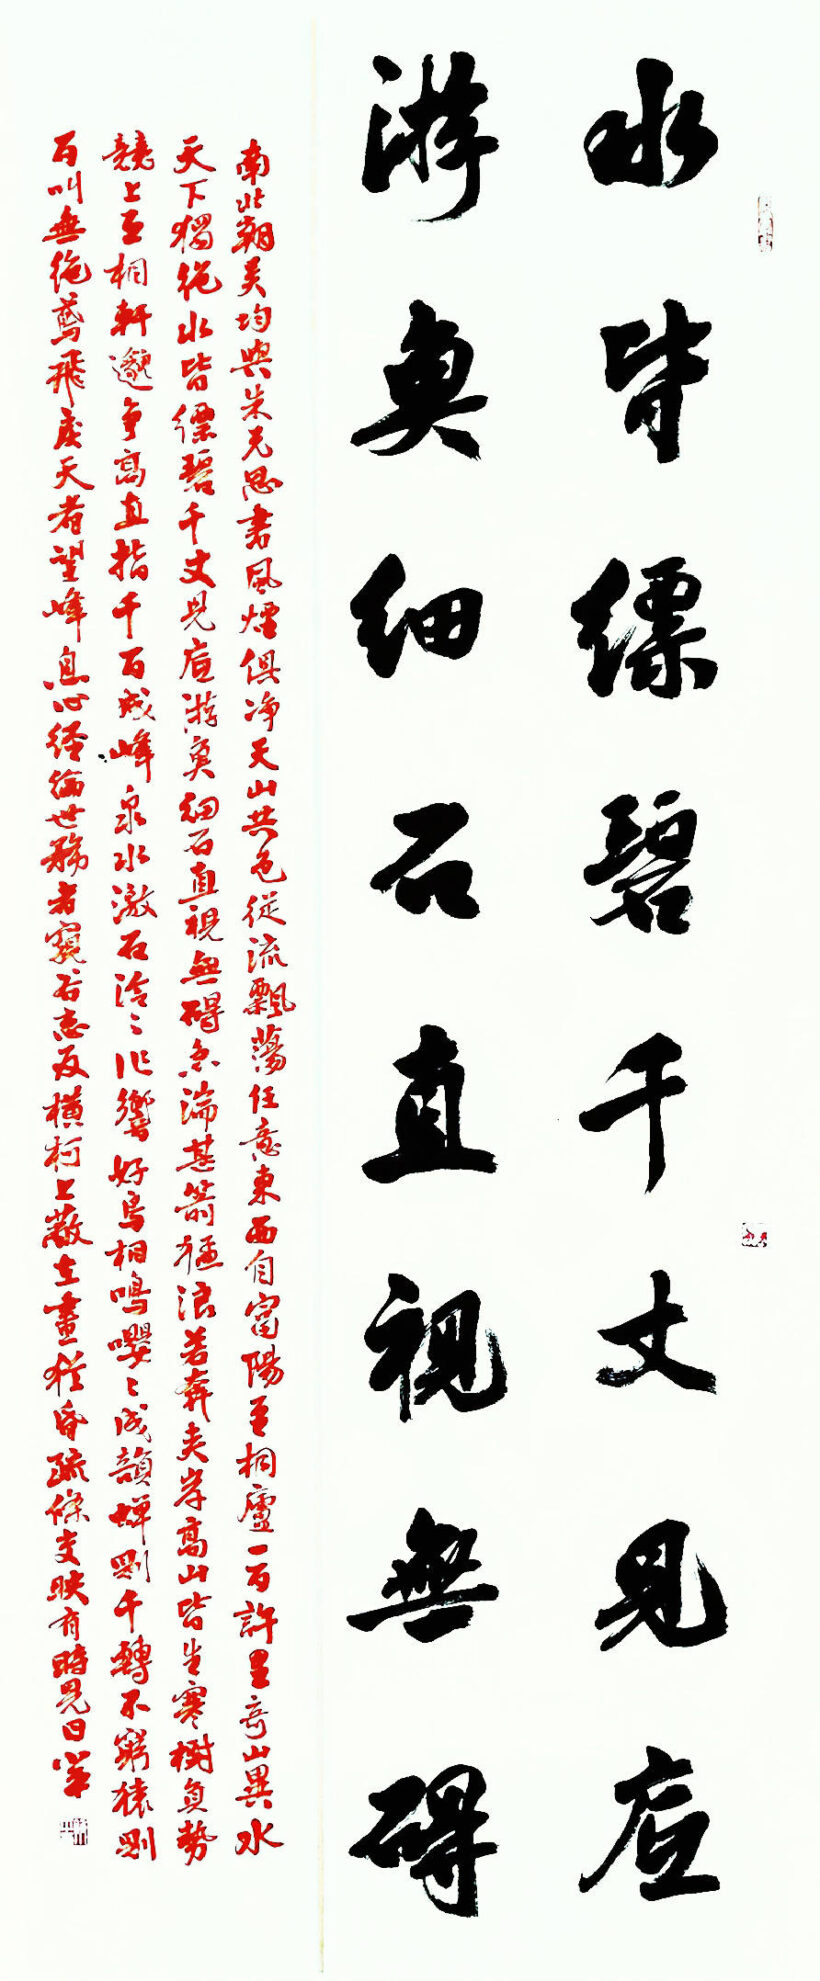 水皆縹碧千丈見底
游魚細石直視無礙
南北朝吳均與朱元思書風煙俱淨天山共色從流飄蕩任意東西自富陽至桐廬一百許里奇山異水
天下獨絕水皆縹碧千丈見底游魚細石直視無礙急湍甚箭猛浪若奔夾岸高山皆生寒樹負勢
競上互相軒邈爭高直指千百成峰泉水激石泠〻作響好鳥相鳴嚶〻成韻蟬則千轉不窮猿則
百叫無絕鳶飛戾天者望峰息心經綸世務者窺谷忘反橫柯上蔽在晝猶昏疏條交映有時見日